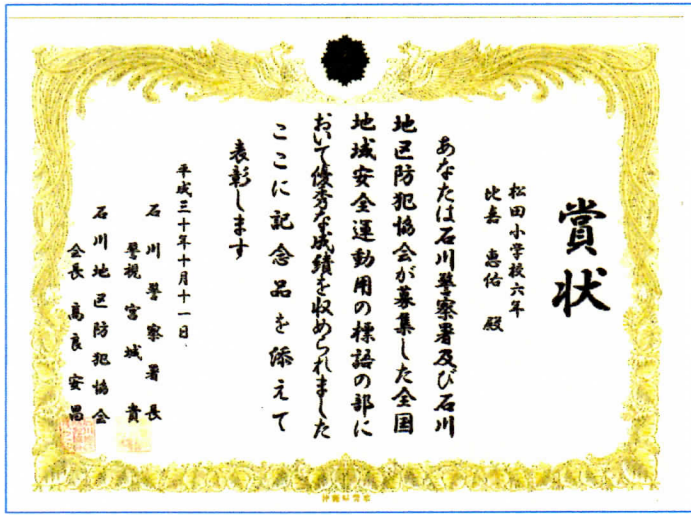 賞状
松田小学校六年
比嘉 恵佑 殿
あなたは石川警察署及び石川
地区防犯協会が募集した全国
地域安全運動用の標語の部に
おいて優秀な成績を収められました
ここに記念品を添えて
表彰します
平成三十年十月十一日
石川警察署長
警視 宮城 貴
石川地区防犯協会
会長 高良安昌